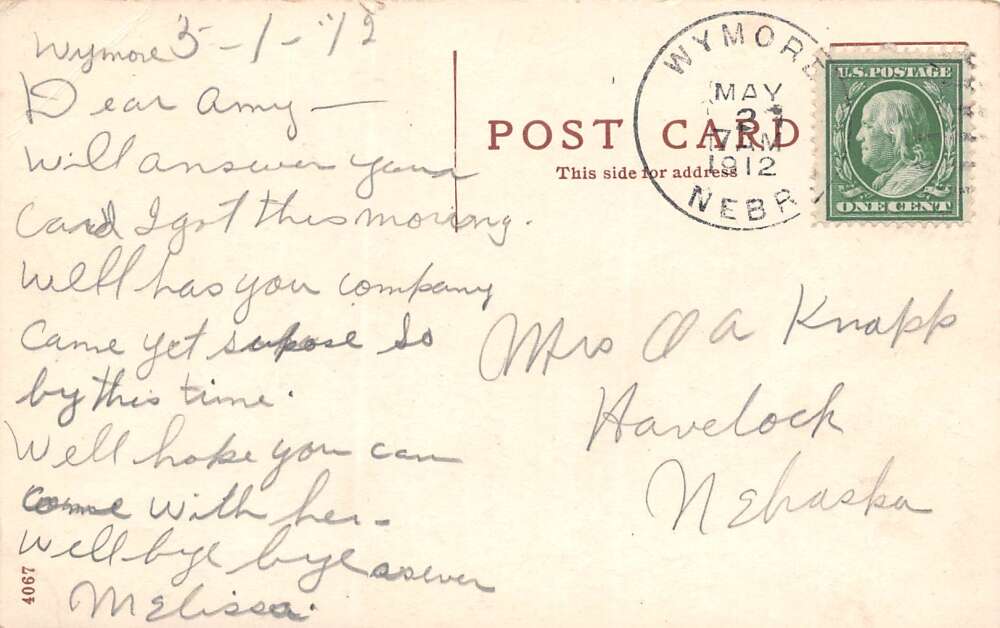 Wymore 5-1-12
Dear Amy—
Will answer your
Card I got this moring.
Well has you company
Came yet supose so
by this time.
Well hope you can
come with her-
Well bye bye as ever
Melissa.
4067
POST CARD
This side for address
WYMORE
MAY
2
7 AM
1912
NEBR
U.S. POSTAGE
ONE CENT
Mrs O A Knapp
Havelock
Nebraska